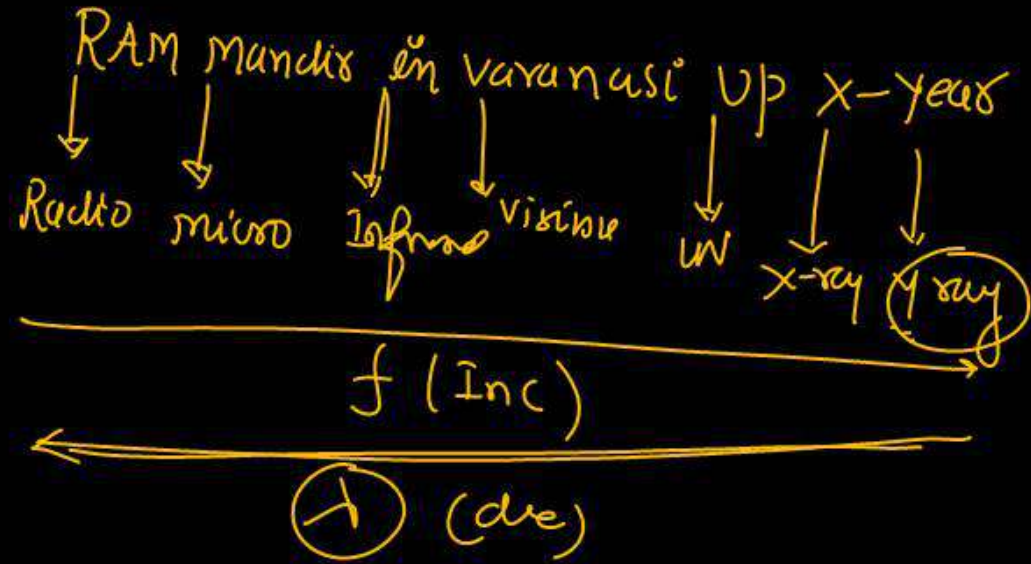 RAM Mandir in varanasi UP X-year
Radio micro Infrared visible UV X-ray γ ray
f (Inc)
λ (dre)